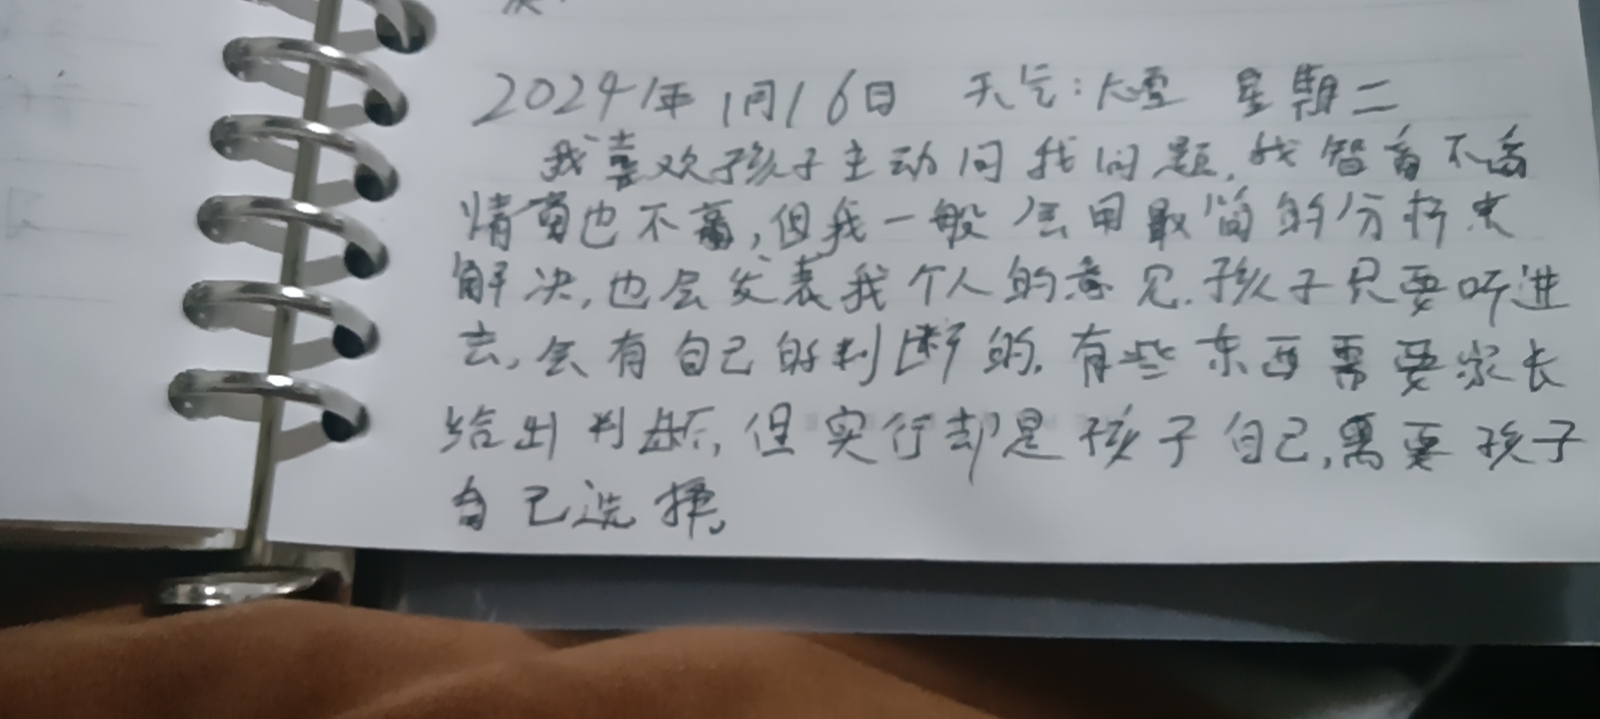 2024年1月16日 天气:大雪 星期二
我喜欢孩子主动问我问题,我智商不高
情商也不高,但我一般会用最简的分析来
解决,也会发表我个人的意见.孩子只要听进
去,会有自己的判断的.有些东西需要家长
给出判断,但实行却是孩子自己,需要孩子
自己选择。